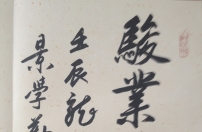 駿業
壬辰龍
景學勤